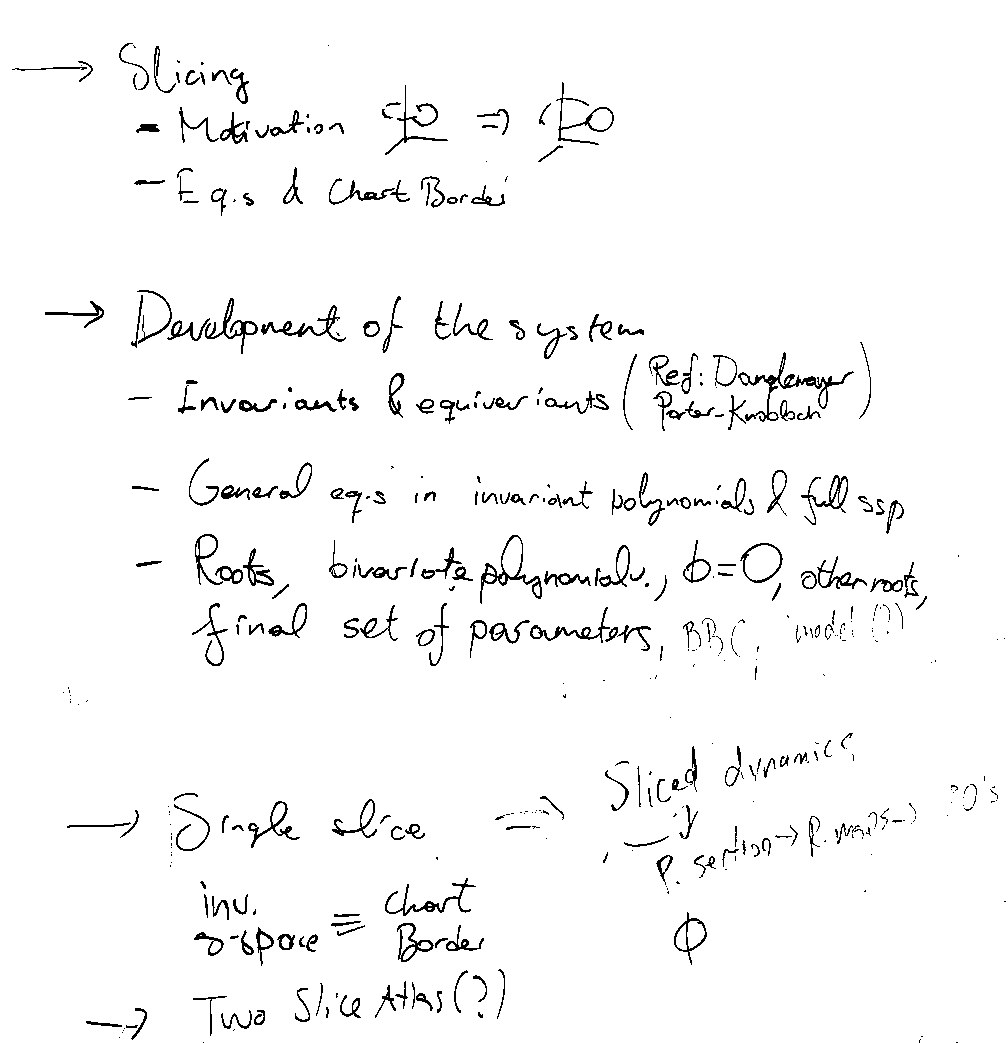 → Slicing
- Motivation ⇒
- Eq.s & Chart Border
→ Development of the system
- Invariants & equivariants (Ref: Danglemayer
Porter-Knobloch)
- General eq.s in invariant polynomials & full ssp
- Roots, bivariate polynomials, b=0, other roots,
final set of parameters, BBC, model (?)
→ Single slice ⇒ Sliced dynamics
P. section → R. maps → PO's
inv. s-space ≡ Chart Border
ϕ
→ Two Slice Atlas (?)